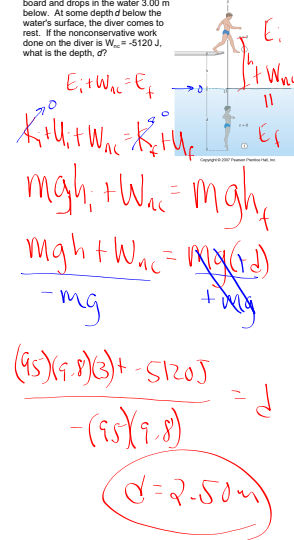 board and drops in the water 3.00 m
below. At some depth d below the
water's surface, the diver comes to
rest. If the nonconservative work
done on the diver is Wnc = -5120 J,
what is the depth, d?
Ei
+ Wnc
h
Ei + Wnc = Ef
=
Ef
Copyright © 2007 Pearson Prentice Hall, Inc.
0
Ki + Ui + Wnc = Kf + Uf
0
mghi + Wnc = mghf
mgh + Wnc = mg(-d)
-mg
(95)(9.8)(3) + -5120J
= d
-(95)(9.8)
d = 2.50m